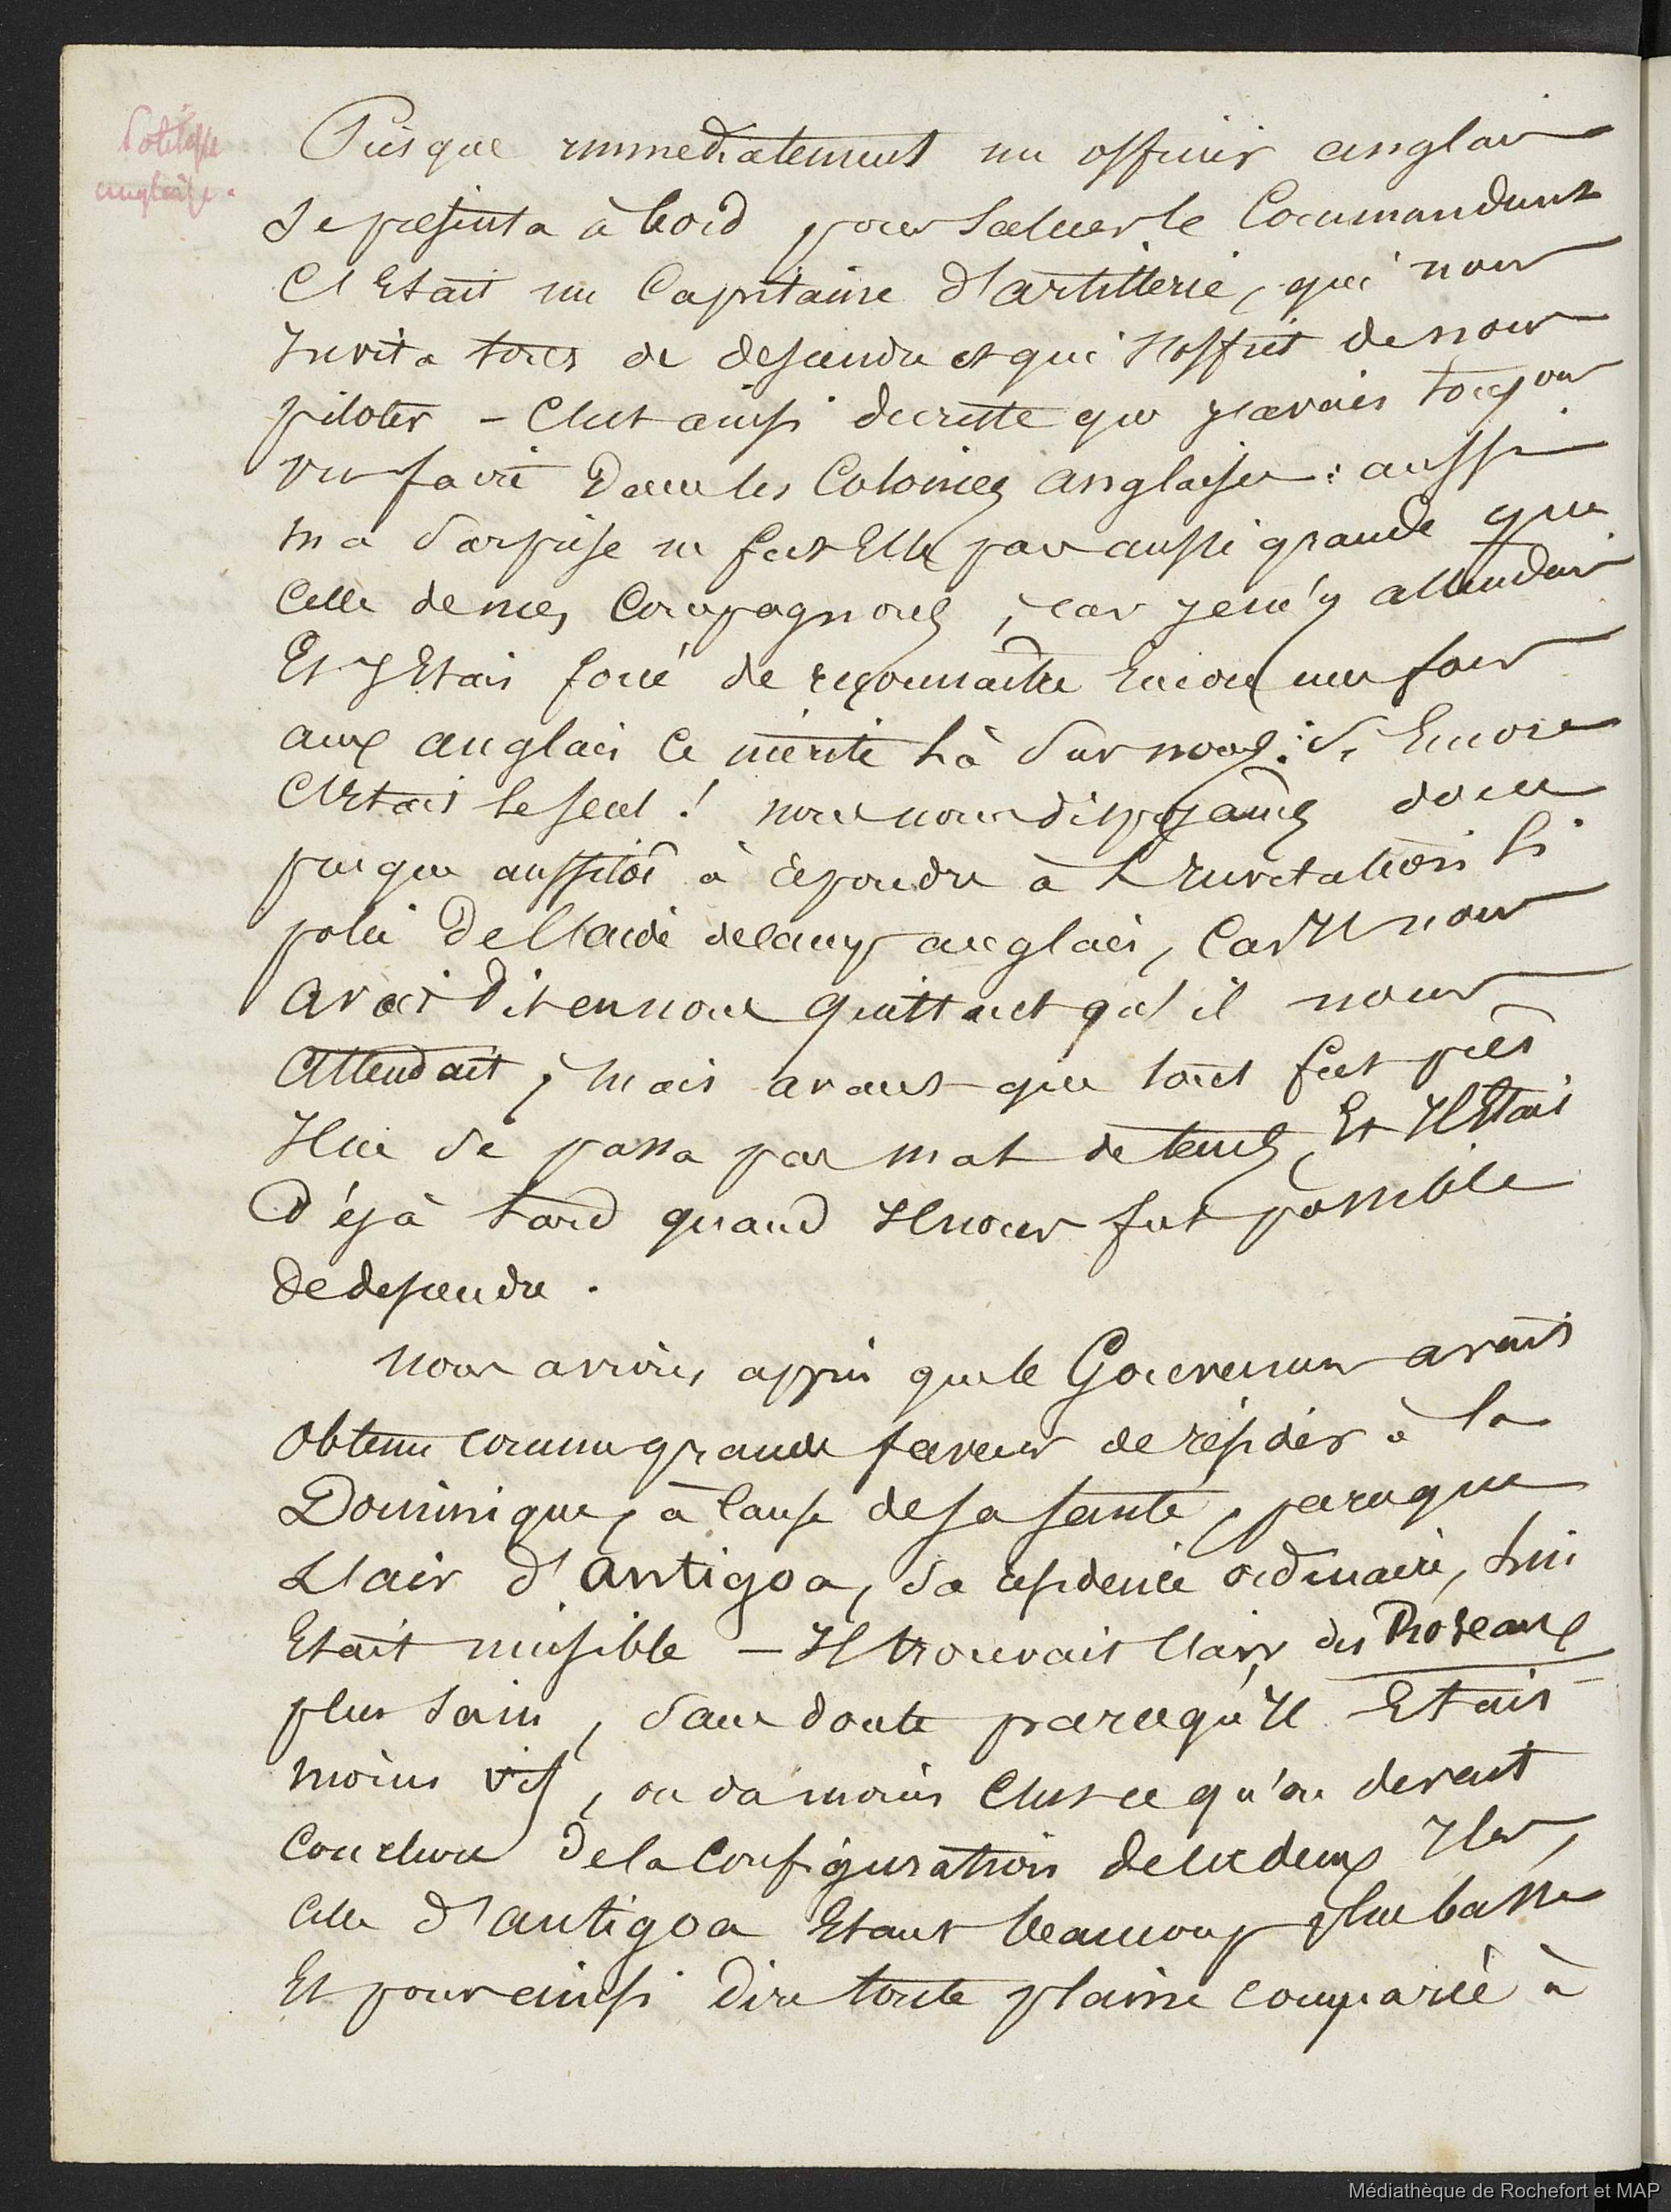 Politesse
anglaise.
Presque immediatement un officier anglais
se presenta à bord pour saluer le Commandant
C'Etait un Capitaine d'artillerie, qui nous
Invita tous de descendre et qui s'offrit de nous
piloter – C'est ainsi du reste que j'avais toujours
vu faire Dans les Colonies anglaises : aussi
ma surprise ne fut Elle pas aussi grande que
Celle de mes Compagnons, car je m'y attendais
Et J'Etais forcé de reconnaître Encore une fois
aux anglais ce mérite là sur nous : si Encore
C'Etait le seul ! nous nous disposâmes donc
presque aussitôt à répondre à L'Invitation si
polie De L'aide de camp anglais, Car Il nous
avait Dit en nous quittant qu'il nous
Attendait ; mais avant que tout fut près
Il ne se passa pas mal de tems, Et Il Etait
Déjà tard quand Il nous fut possible
De descendre.
Nous avions appris que le Gouverneur avait
obtenu comme grande faveur de résider à la
Dominique, à Cause de sa santé, parceque
L'air d'Antigoa, sa résidence ordinaire, lui
Etait nuisible – Il trouvait l'air des Roseaux
plus sain, sans doute parcequ'Il Etait
moins vif, ou du moins C'est ce qu'on devait
Conclure De la Configuration de ces deux Iles,
Celle d'antigoa Etant beaucoup plus basse
Et pour ainsi Dire toute plaine comparée à
Médiathèque de Rochefort et MAP